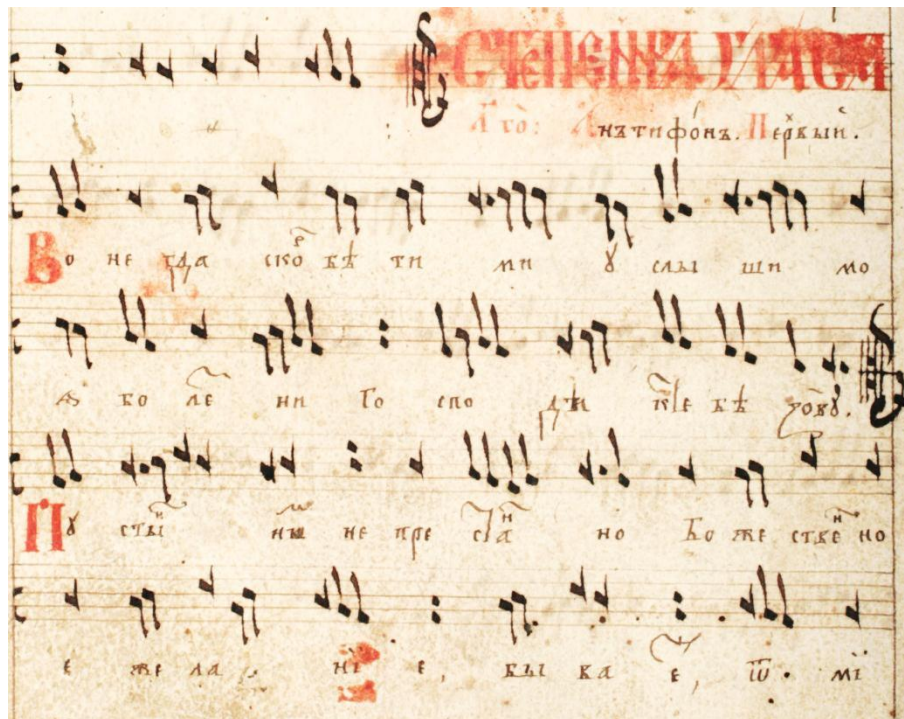 СТЕПЕННА ГЛАСА
А го: Антифонъ. Первый.
Во не гда ско рбѣ ти ми ꙋ слы ши мо
ѧ бо лѣ ни Го спо ди к тебѣ зовꙋ.
Пꙋ сты нны не пре ста нно Бо же стве но
е же ла ні е, бы ва е, ѿ. мі